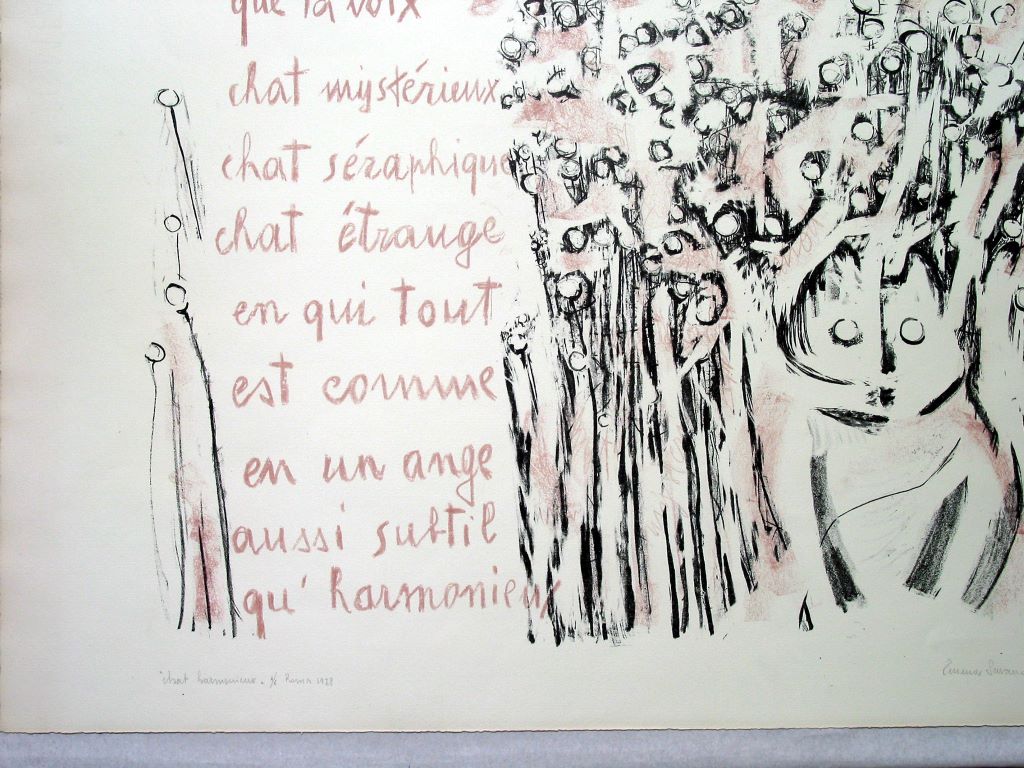 que ta voix
chat mystérieux
chat séraphique
chat étrange
en qui tout
est comme
en un ange
aussi subtil
qu'harmonieux
"chat harmonieux" Roma